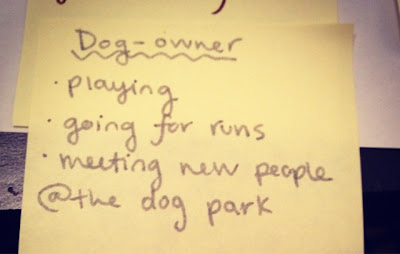 Dog-owner
· playing
· going for runs
· meeting new people
@ the dog park